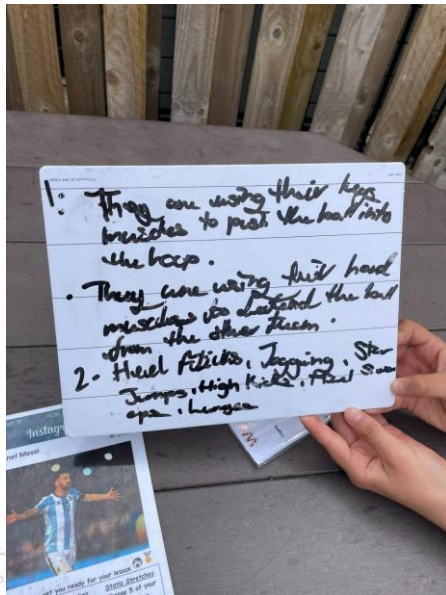 1: They are using their legs
muscles to push the ball into
the hoop.
. They are using their hand
muscles to defend the ball
from the other team.
2. Heel flicks, Jogging, Star
Jumps, High Kicks,
ups, Lunges
Instag
nel Messi
get you ready for your lesson
Static Stretches
5 of your